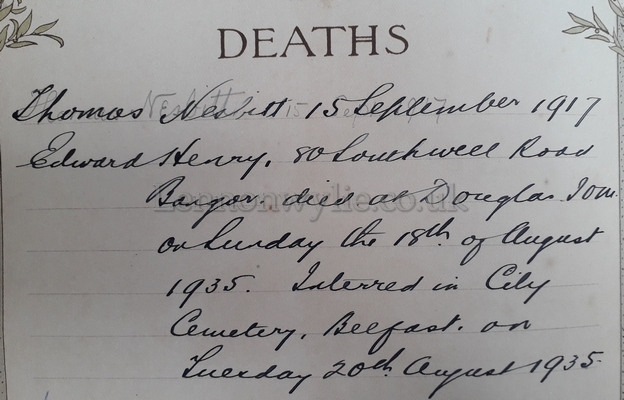 DEATHS
Thomas Nesbitt 15 September 1917
Edward Henry, 80 Southwell Road
Bangor. died at Douglas Iom.
on Sunday the 18th. of August
1935. Interred in City
Cemetery, Belfast. on
Tuesday 20th. August 1935.
Lennonwylie.co.uk